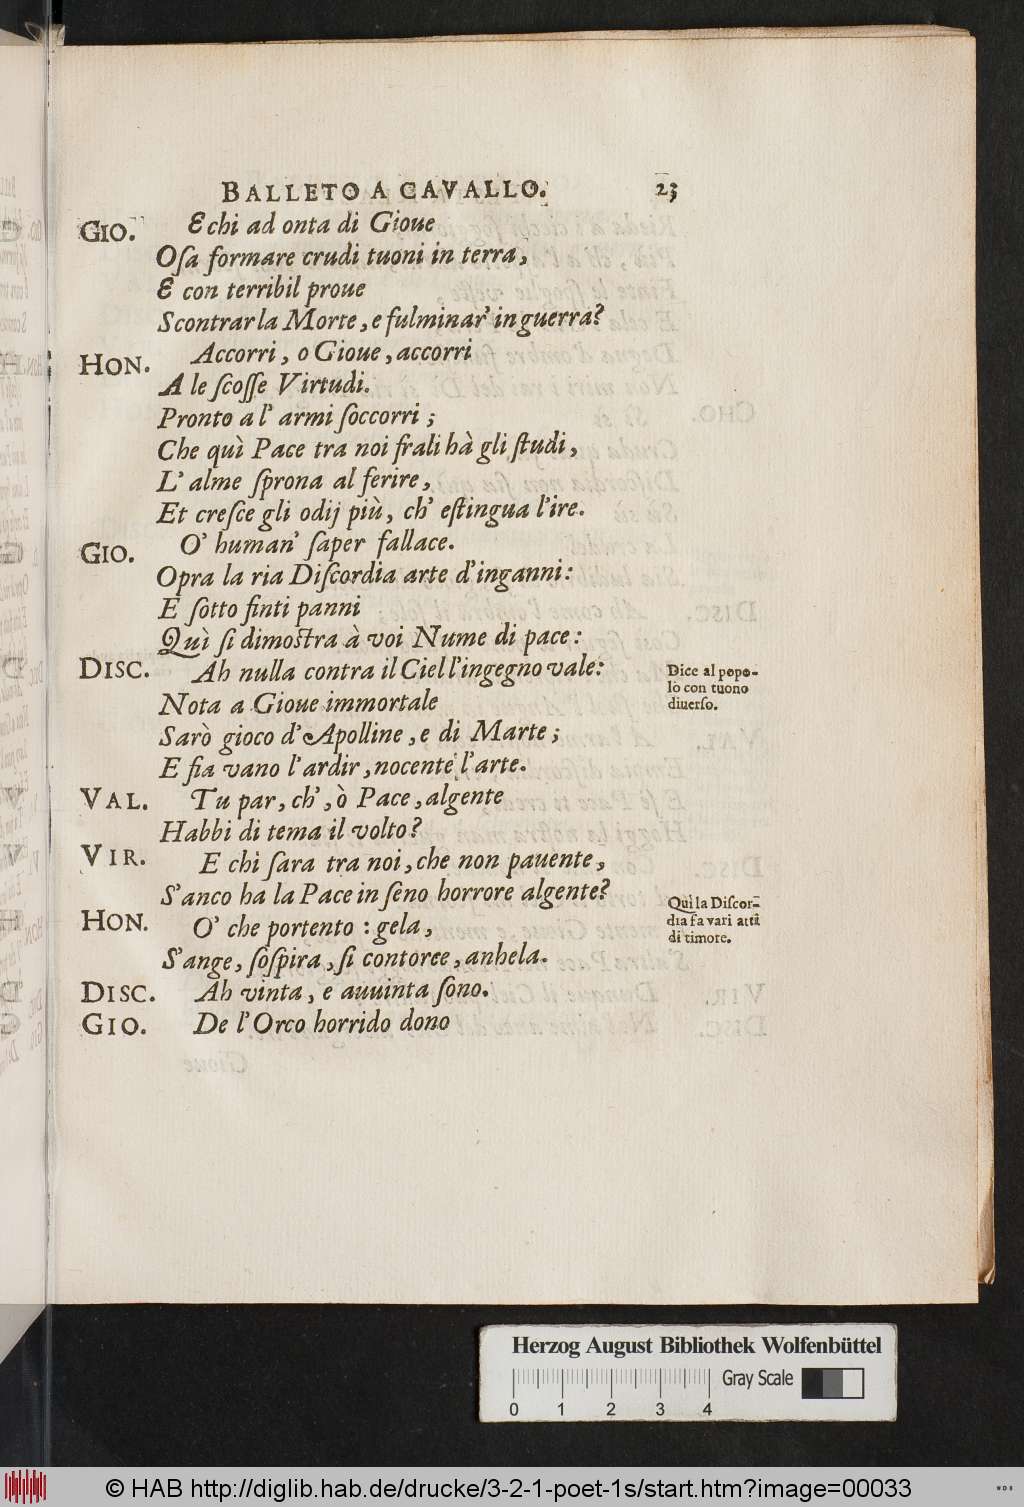 BALLETO A CAVALLO. 23
GIO. E chi ad onta di Gioue
Oſa formare crudi tuoni in terra,
E con terribil proue
Scontrar la Morte, e fulminar' in guerra?
HON. Accorri, o Gioue, accorri
A le ſcoſſe Virtudi.
Pronto a l' armi ſoccorri;
Che quì Pace tra noi frali hà gli ſtudi,
L' alme ſprona al ferire,
Et creſce gli odij più, ch' eſtingua l'ire.
GIO. O' human' ſaper fallace.
Opra la ria Diſcordia arte d'inganni:
E ſotto finti panni
Quì ſi dimoſtra à voi Nume di pace:
DISC. Ah nulla contra il Ciel l'ingegno vale:
Dice al popo-
lo con tuono
diuerſo.
Nota a Gioue immortale
Sarò gioco d'Apolline, e di Marte;
E fia vano l'ardir, nocente l'arte.
VAL. Tu par, ch', ò Pace, algente
Habbi di tema il volto?
VIR. E chi ſara tra noi, che non pauente,
S'anco ha la Pace in ſeno horrore algente?
Quì la Diſcor-
dia fa vari atti
di timore.
HON. O' che portento: gela,
S'ange, ſoſpira, ſi contorce, anhela.
DISC. Ah vinta, e auuinta ſono.
GIO. De l'Orco horrido dono
Herzog August Bibliothek Wolfenbüttel
Gray Scale
0 1 2 3 4
© HAB http://diglib.hab.de/drucke/3-2-1-poet-1s/start.htm?image=00033